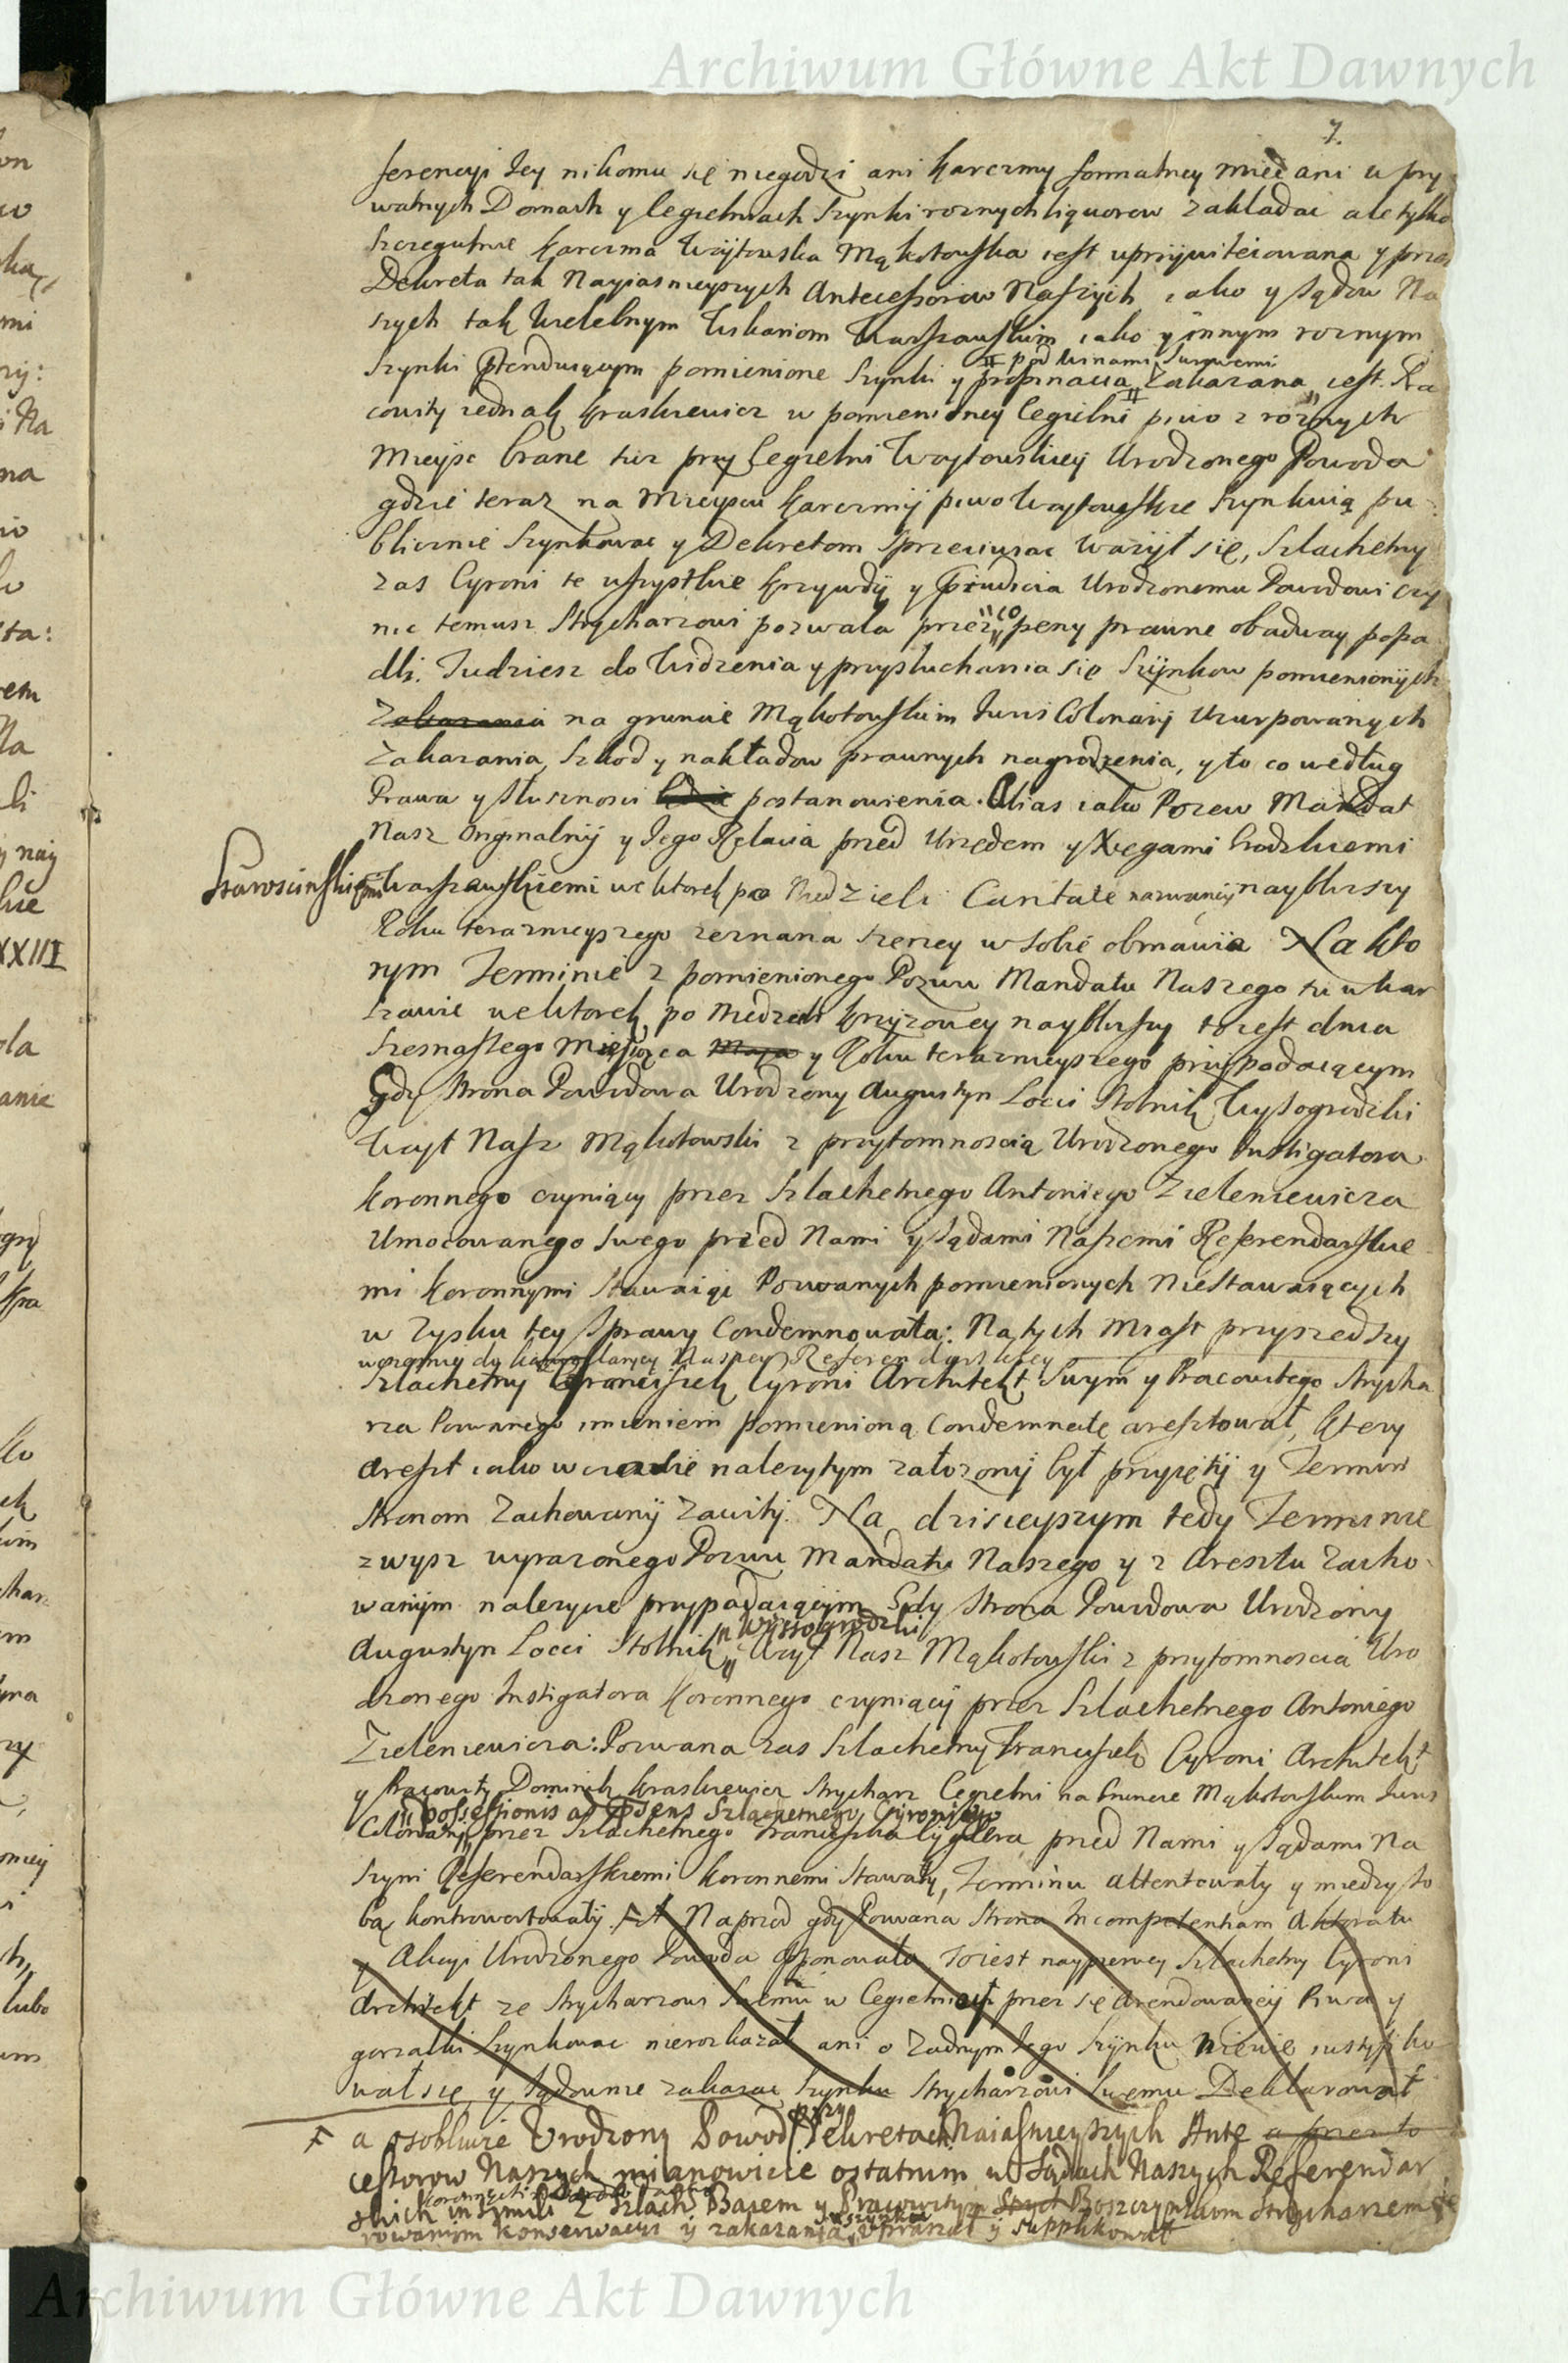 Archiwum Główne Akt Dawnych
7.
ferencyi Jey nikomu się niegodzi ani karczmy formalney mieć ani w pry
watnych Domach y Cegielniach Szynki roznych liquorow zakładac ale tylko
szczegulnie karczma Woytowska Mąkotowska iest uprzywileiowana y przez
Dekreta tak Nayiasnieyszych Antecessorow Naszych, iako y Sądow Na
szych tak Wielebnym Wikariom Warszawskim iako y innym roznym
pod winami surowemi
Szynki Ptenduiącym pomienione Szynki y propinacia zakazana iest. Pra
cowity iednak Kraskiewicz w pomienioney Cegielni piwo z roznych
Mieysc brane tuz przy Cegielni Woytowskiey Urodzonego Powoda
gdzie teraz na Mieyscu karczmy piwo Woytowskie Szynkuią pu
blicznie Szynkowac y Dekretom sprzeciwiac wazył się, Szlachetny
zas Cyroni te wszystkie krzywdy y Priudicia Urodzonemu Powodowi czy
nic temusz Strycharzowi pozwala przez co peny prawne obadway popa
dli. Tudziesz do Widzenia y przysłuchania się Szynkow pomienionych
zakazania na gruncie Mąkotowskim Iuris Colonarij Uzurpowanych
zakazania, Szkod y nakładow prawnych nagrodzenia, y to co według
Prawa y słusznosci postanowienia. Alias iako Pozew Mandat
Nasz Originalny y Jego Relacia przed Urzędem y Xięgami Grodzkiemi
Warszawskiemi we Wtorek po Niedzieli Cantate nazwaney naybliszy
Roku teraznieyszego zeznana szerzey w sobie obmawia Na kto
rym Terminie z pomienionego Pozwu Mandatu Naszego tu w War
szawie we Wtorek po Niedzieli krzyzowey naybliszy to iest dnia
Szesnastego Miesiąca Maja y Roku teraznieyszego przypadaiącym
Gdy Strona Powodowa Urodzony Augustyn Locci Stolnik Wysogrodzki
Woyt Nasz Mąkotowski z przytomnoscią Urodzonego Instigatora
koronnego czyniący przez Szlachetnego Antoniego Zieleniewicza
Umocowanego swego przed Nami y Sądami Naszemi Referendarskie
mi koronnymi stawaiąc Pozwanych pomienionych Niestawaiących
w Zysku tey sprawy Condemnowała: Natych Miast przyszedszy
Naszey Referendarskiey
Szlachetny Franciszek Cyroni Architekt Swym y Pracowitego Strycha
rza Pozwanego imieniem pomienioną Condemnatę aresztował, ktory
Areszt iako w czasie nalezytym załozony był przyięty y Termin
stronom zachowany zawity. Na dzisieyszym tedy Terminie
z wysz wyrazonego Pozwu Mandatu Naszego y z Aresztu zacho
wanym nalezycie przypadaiącym Gdy Strona Powodowa Urodzony
Wyssogrodzki
Augustyn Locci Stolnik Woyt Nasz Mąkotowski z przytomnoscia Uro
dzonego Instigatora koronnego czyniący przez Szlachetnego Antoniego
Zieleniewicza: Pozwana zas Szlachetny Franciszek Cyroni Architekt
y Pracowity Dominik Kraskiewicz Strycharz Cegielni na Gruncie Mąkotowskim Iuris
possessionis Szlachetnego Cyroniego
Colonarij przez Szlachetnego Franciszka przed Nami y Sądami Na
szymi Referendarskiemi koronnemi stawały, Terminu attentowały y między so
bą kontrowertowały. Naprzod gdy Pozwana Strona Incompetentiam Aktoratu
y Akcyi Urodzonego Powoda opponowała, to iest naypierwey Szlachetny Cyroni
Architekt ze Strycharzowi swemu w Cegielni przez się Arendowaney Piwa y
gorzałki Szynkowac nierozkazał ani o zadnym Jego Szynku Niewie iustyfiko
wał się y sądownie zakazac Szynku Strycharzowi swemu Deklarował
a osobliwie Urodzony Powod przy Dekretach Naiasnieyszych Ante a przez to
cessorow Naszych mianowicie ostatnim w Sądach Naszych Referendar
skich z Szlach: Barem y Pracowitym Strycharzem
rowanym konserwacyi y zakazania upraszał y supplikował
Archiwum Główne Akt Dawnych